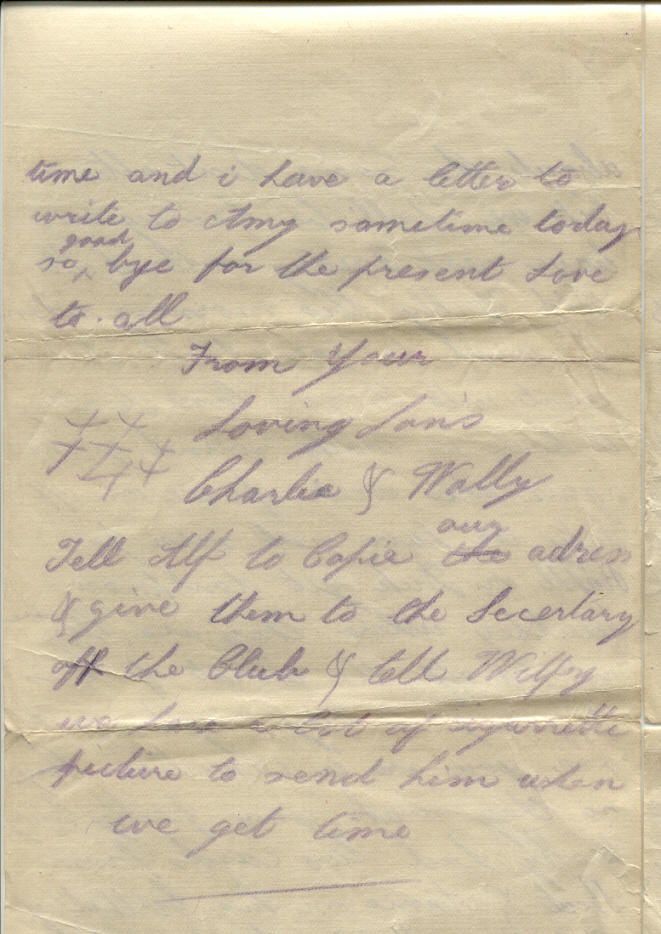 time and i have a letter to
write to Amy sometime today
so good bye for the present Love
to. all
From Your
Loving Son's
Charlie & Wally
Tell Alf to Copie the our adress
& give them to the Secertary
off the Club & tell Wilfy
we have a lot of sigurrette
picture to send him when
we get time